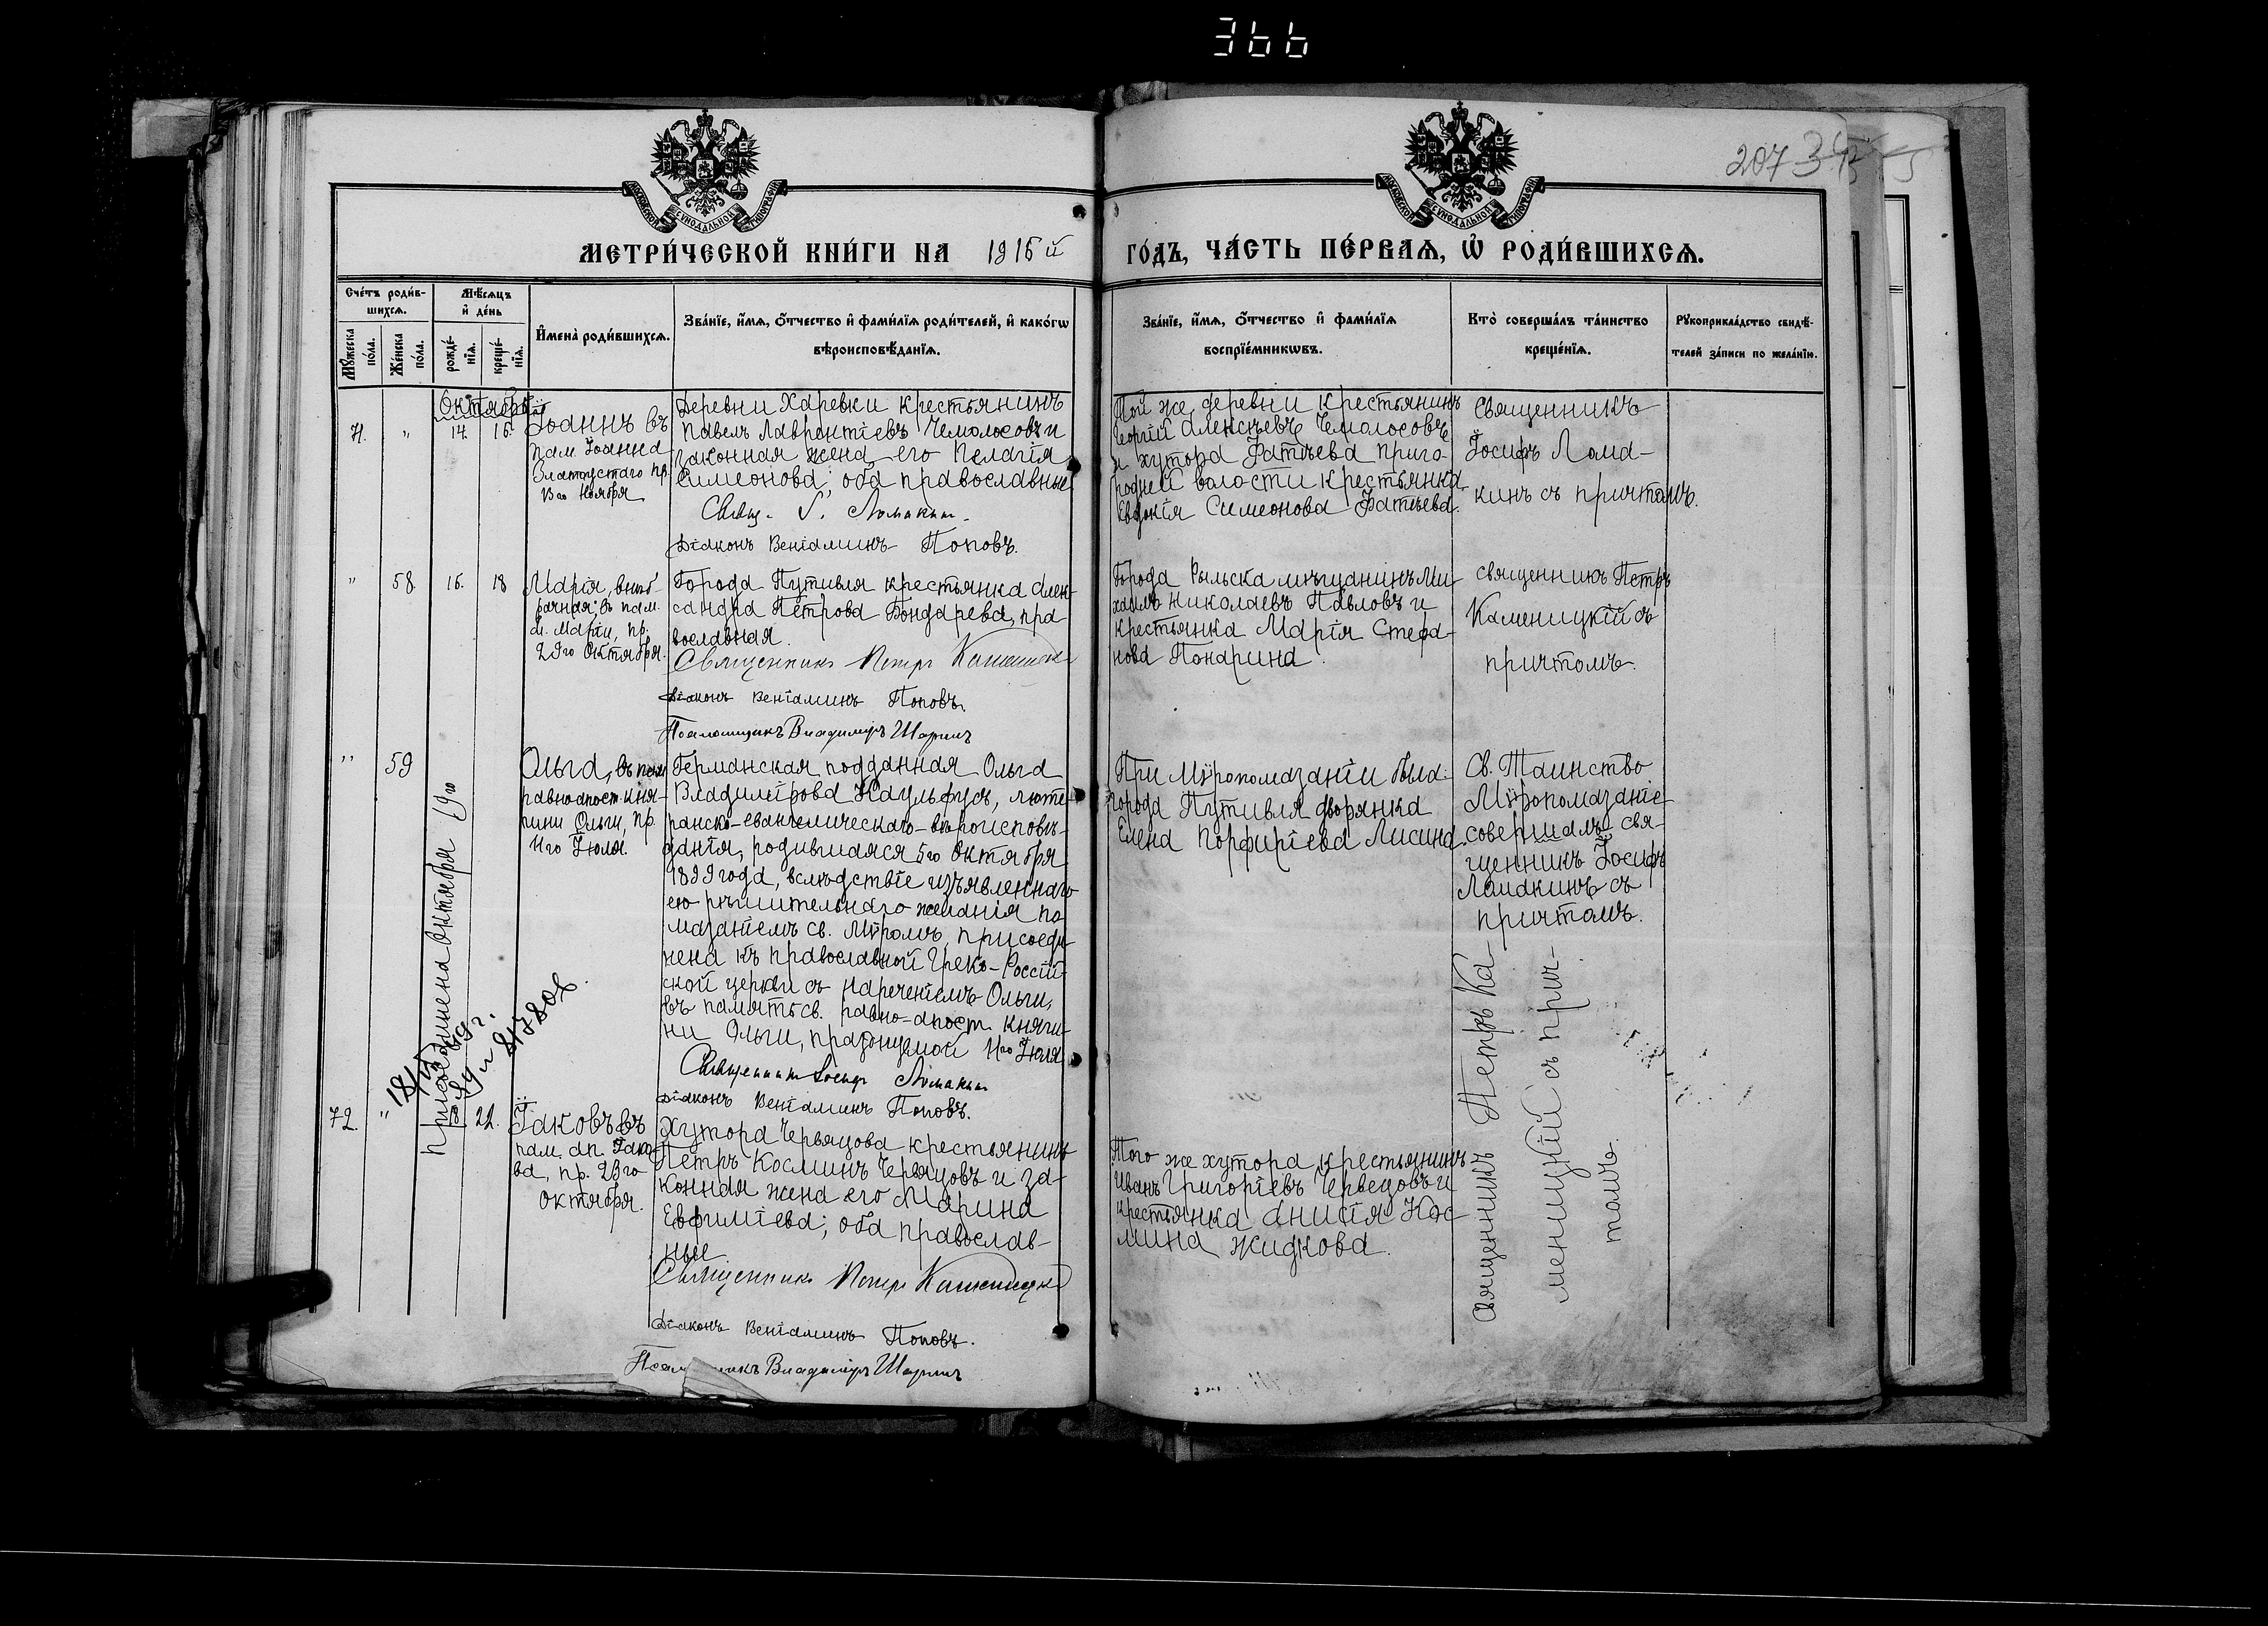 366
207
МОСКОВСКОЙ СѴНОДАЛЬНОЙ ТИПОГРАФІИ
МОСКОВСКОЙ СѴНОДАЛЬНОЙ ТИПОГРАФІИ
МЕТРИ́ЧЕСКОЙ КНИ́ГИ НА 1915й ГО́ДЪ, ЧА́СТЬ ПЕ́РВАѦ, Ѡ҆ РОДИ́ВШИХСѦ.
Сче́тъ роди́в-
шихсѧ.
Мꙋжеска по́ла.
Же́нска по́ла.
Мѣ́сѧцъ
и҆ де́нь
рожде́-
нїѧ.
креще́-
нїѧ.
И҆мена̀ роди́вшихсѧ.
Зва́нїе, и҆́мѧ, ѻ҆́тчество и҆ фами́лїѧ роди́телей, и҆ како́гѡ
вѣроисповѣ́данїѧ.
Зва́нїе, и҆́мѧ, ѻ҆́тчество и҆ фами́лїѧ
воспрїе́мникѡвъ.
Кто̀ соверша́лъ та́инство
креще́нїѧ.
Рꙋкоприкла́дство свидѣ́-
телей за́писи по жела́нїю.
Октябрь
71. " 14. 15.
Іоаннъ въ
пам. Іоанна
Златоустаго пр.
13го Ноября
Деревни Харевки крестьянинъ
Павелъ Лаврентіевъ Чемолосовъ и
законная жена его Пелагія
Симеонова; оба православные
Свящ. І. Ломакин
Діаконъ Веніаминъ Поповъ.
Той же деревни крестьянинъ
Георгій Алексѣевъ Чемолосовъ
и хутора Фатѣева Приго-
родней волости крестьянка
Евдокія Симеонова Фатѣева.
Священникъ
Іосифъ Лома-
кинъ съ причтомъ.
" 58 15. 18
Марія, внѣб-
рачная въ пам.
м. Маріи, пр.
29го Октября.
Города Путивля крестьянка Алек-
сандра Петрова Бондарева, пра-
вославная.
Священникъ Петръ Каменицкій
Діаконъ Веніаминъ Поповъ.
Псаломщикъ Владиміръ Шаринъ
Города Рыльска мѣщанинъ Ми-
хаилъ Николаевъ Павловъ и
крестьянка Марія Стефа-
нова Понарина.
Священникъ Петръ
Каменицкій съ
причтомъ.
" 59
присоединена Октября 19го
Ольга, въ пам.
равноапост. кня-
гини Ольги, пр.
11го Іюля.
Германская подданная Ольга
Владимірова Каульфусъ, люте-
ранско-евангелическаго-вѣроисповѣ-
данія, родившаяся 5го Октября
1899 года, вслѣдствіе изъявленнаго
ею рѣшительнаго желанія по-
мазаніемъ св. Мѵромъ, присоеди-
нена къ православной Греко-Россій-
ской церкви съ нареченіемъ Ольги,
въ память св. равно-апост. Княги-
ни Ольги, празднуемой 11го Іюля
Священникъ Іосифъ Ломакин
Діаконъ Веніаминъ Поповъ.
При Мѵропомазаніи была:
города Путивля дворянка
Елена Порфиріева Лисина.
Св. Таинство
Мѵропомазаніе
совершалъ свя-
щенникъ Іосифъ
Ломакинъ съ
причтомъ.
72. " 22.
Іаковъ въ
пам. ап. Іако-
ва, пр. 23го
Октября.
Хутора Червяцова крестьянинъ
Петръ Косминъ Червяцовъ и за-
конная жена его Марина
Евфиміева; оба православ-
ные
Священникъ Петръ Каменицкій
Діаконъ Веніаминъ Поповъ.
Владиміръ Шаринъ
Того же хутора, крестьянинъ
Иванъ Григоріевъ Червецовъ и
крестьянка Анисія Кос-
мина Жидкова.
Священникъ Петръ Ка-
меницкій съ прич-
томъ.